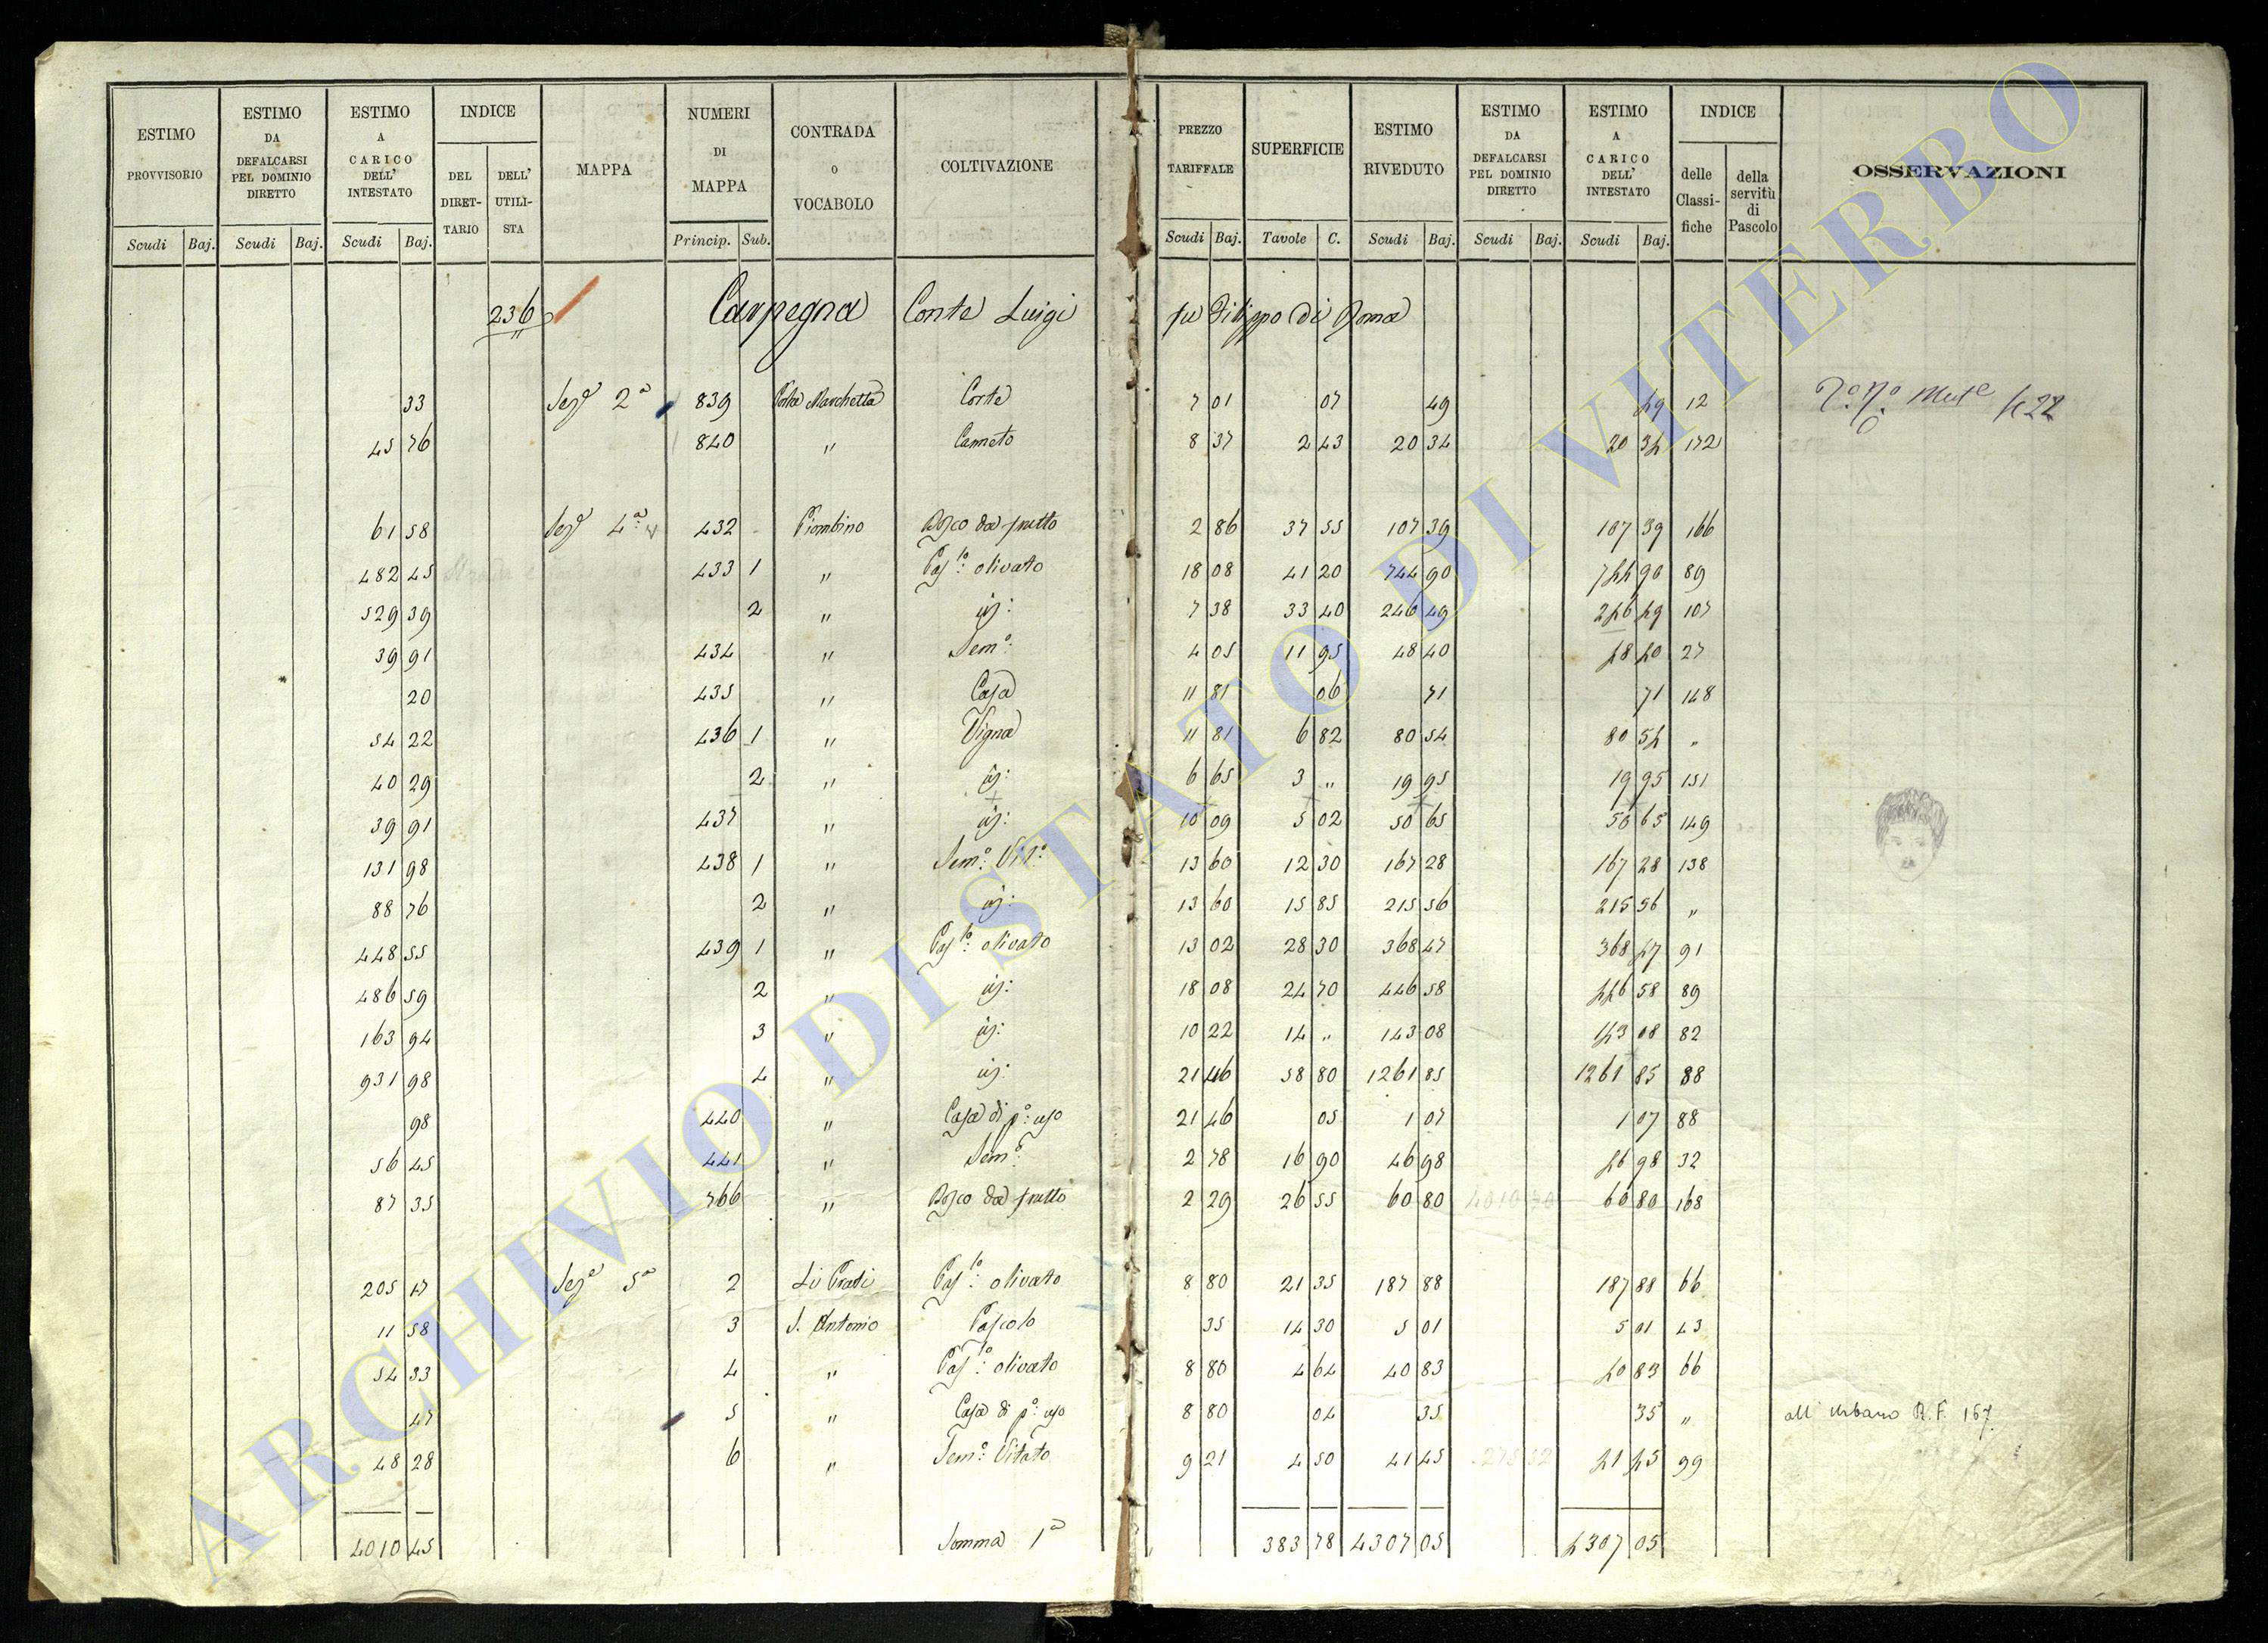 ESTIMO PROVVISORIO | ESTIMO DA DEFALCARSI PEL DOMINIO DIRETTO | ESTIMO A CARICO DELL' INTESTATO | INDICE | MAPPA | NUMERI DI MAPPA | CONTRADA o VOCABOLO | COLTIVAZIONE | PREZZO TARIFFALE | SUPERFICIE | ESTIMO RIVEDUTO | ESTIMO DA DEFALCARSI PEL DOMINIO DIRETTO | ESTIMO A CARICO DELL' INTESTATO | INDICE | OSSERVAZIONI
DEL DIRETTARIO | DELL' UTILISTA | delle Classifiche | della servitù di Pascolo
Scudi | Baj. | Scudi | Baj. | Scudi | Baj. | Princip. | Sub. | Scudi | Baj. | Tavole | C. | Scudi | Baj. | Scudi | Baj. | Scudi | Baj.
236 Carpegna Conte Luigi fu Filippo di Roma
33 Sezº 2ª 839 Porta Marchetta Corte 7 01 07 49 49 12
45 76 840 " Canneto 8 37 2 43 20 34 20 34 172
61 58 Sezº 4ª 432 Piombino Bosco da frutto 2 86 37 55 107 39 107 39 166
482 45 433 1 " Pasto: olivato 18 08 41 20 744 90 744 90 89
529 39 2 " id: 7 38 33 40 246 49 246 49 107
39 91 434 " Semº: 4 05 11 95 48 40 48 40 27
20 435 " Casa 11 81 06 71 71 148
54 22 436 1 " Vigna 11 81 6 82 80 54 80 54 "
40 29 2 " id: 6 65 3 " 19 95 19 95 151
39 91 437 " id: 10 09 5 02 50 65 50 65 149
131 98 438 1 " Semº: Vitº 13 60 12 30 167 28 167 28 138
88 76 2 " id: 13 60 15 85 215 56 215 56 "
448 55 439 1 " Pasto: olivato 13 02 28 30 368 47 368 47 91
486 59 2 " id: 18 08 24 70 446 58 446 58 89
163 94 3 " id: 10 22 14 " 143 08 143 08 82
931 98 4 " id: 21 46 58 80 1261 85 1261 85 88
98 440 " Casa di pº: uso 21 46 05 1 07 1 07 88
56 45 441 " Semº: 2 78 16 90 46 98 46 98 32
87 35 766 " Bosco da frutto 2 29 26 55 60 80 60 80 168
205 17 Sezº 5ª 2 Li Prati Pasto: olivato 8 80 21 35 187 88 187 88 66
11 58 3 S. Antonio Pascolo 35 14 30 5 01 5 01 43
54 33 4 " Pasto: olivato 8 80 4 64 40 83 40 83 66
47 5 " Casa di pº: uso 8 80 04 35 35 " all' Urbano R. F. 167
48 28 6 " Semº: Vitato 9 21 4 50 41 45 41 45 99
4010 45 Somma 1ª 383 78 4307 05 4307 05
ARCHIVIO DI STATO DI VITERBO